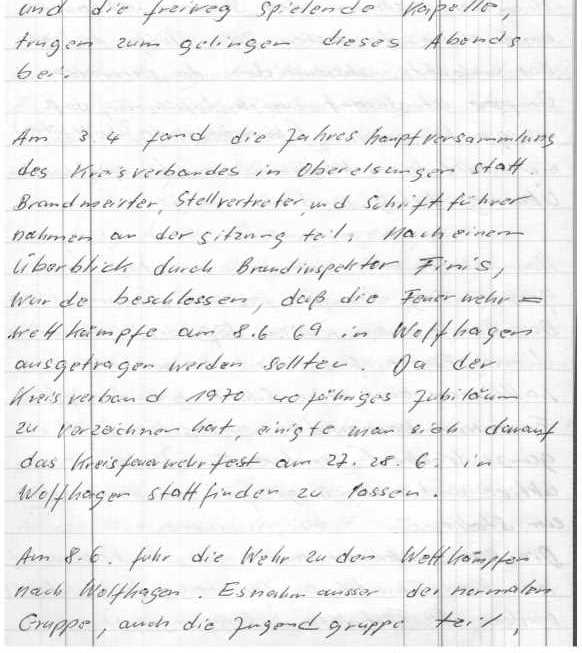 und die freiweg spielende Kapelle,
trugen zum gelingen dieses Abends
bei.
Am 3.4 fand die Jahreshauptversammlung
des Kreisverbandes in Oberelsungen statt.
Brandmeister, Stellvertreter und Schriftführer
nahmen an der sitzung teil. Nach einem
Überblick durch Brandinspektor Finis,
wurde beschlossen, daß die Feuerwehr=
wettkämpfe am 8.6.69 in Wolfhagen
ausgetragen werden sollten. Da der
Kreisverband 1970 40 jähriges Jubiläum
zu verzeichnen hat, einigte man sich darauf
das Kreisfeuerwehrfest am 27. 28. 6. in
Wolfhagen stattfinden zu lassen.
Am 8.6. fuhr die Wehr zu den Wettkämpfen
nach Wolfhagen. Es nahm ausser der normalen
Gruppe, auch die Jugendgruppe teil,